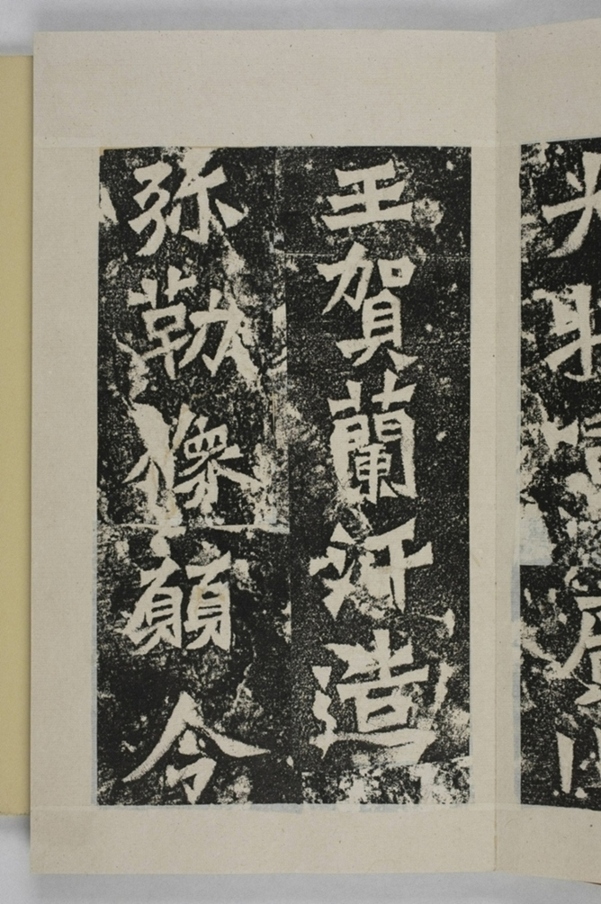 王賀蘭汗造
弥勒像願令